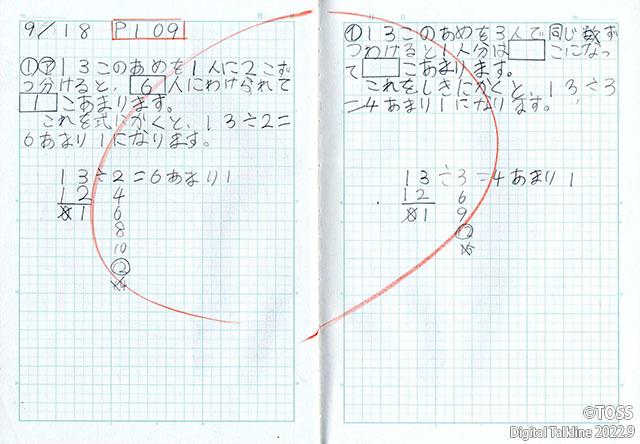 9/18 P109
①㋐13このあめを1人に2こず
つ分けると、6人にわけられて
1こあまります。
これを式にかくと、13÷2=
6あまり1になります。
13÷2=6あまり1
12 4
01 6
8
10
⑫
14
①13このあめを3人で同じ数ず
つわけると1人分は□こになっ
て□こあまります。
これをしきにかくと、13÷3
=4あまり1になります。
13÷3=4あまり1
12 6
01 9
⑫
15
©TOSS
Digital Talkline 2022.9